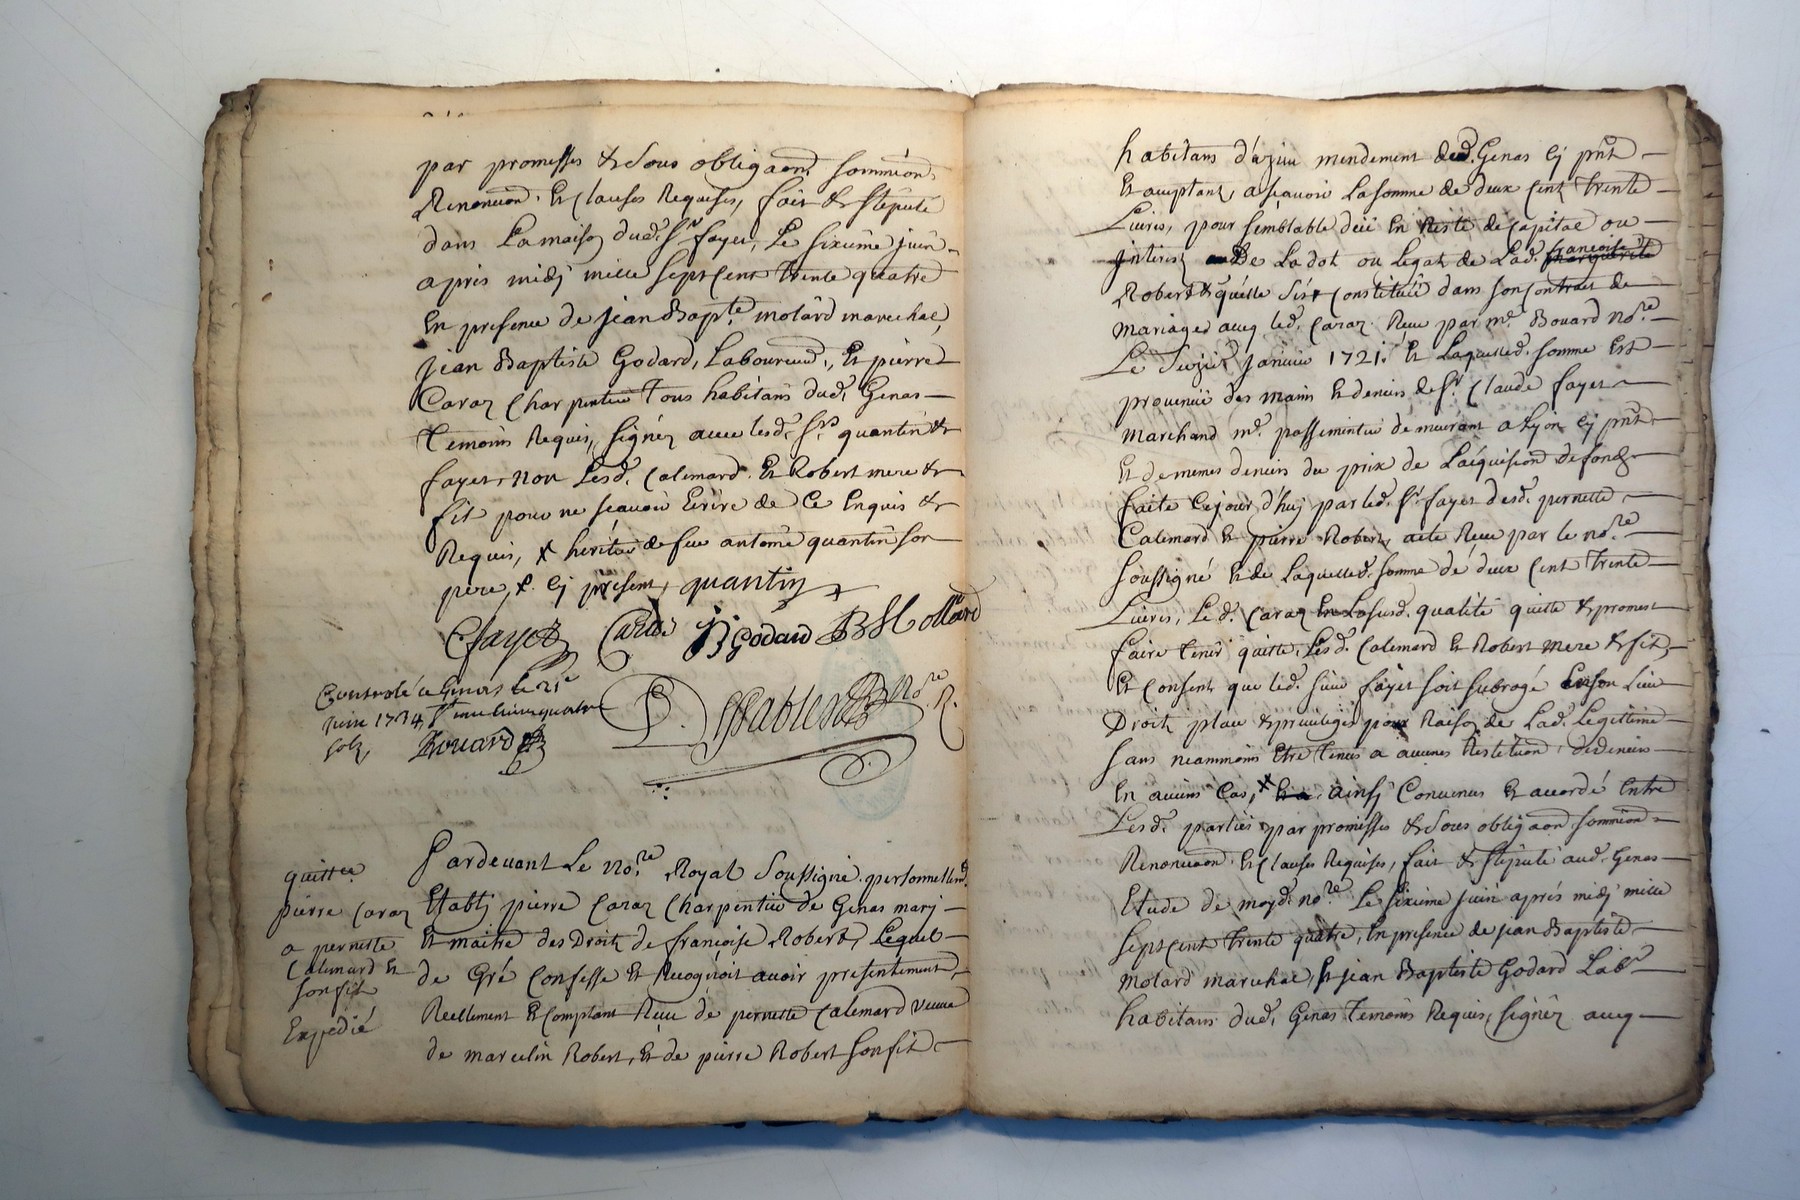 par promesses & sous obligaons, sommions,
Renonuaon. Et Clauses Requises, fait & stepulé
dans La maison dud. Sr fayet, Le sixième juin
apres midj mille sept Cent trente quatre
En presence de jean Bapte. molard marechal,
jean Baptiste Godard, Laboureur, Et pierre
Caraz Charpentier Tous habitans dud. Genas
Temoins Requis, signéz avec lesd. Srs quantin &
fayet, non Lesd. Calemard Et Robert mere &
fils pour ne sçavoir Ecrire de Ce Enquis &
Requis, x héritier de feu antoine quantin son
pere, x. Ej present, quantin
Cfayet Caras JBGodard JBMollard
Controlé a Genas le 21e
juin 1734
solz, Bouard
Nore R.
quittce
pierre Caraz
a pernette
Calemard Et
son fils
Expedié
Pardevant Le Nore. Royal Soussigné personnellemt
Etablj pierre Caraz Charpentier de Genas marj
Et maitre des Droitz de françoise Robert, Lequel
de Gré Confesse Et Recognoit avoir presentement,
Reellement Et Comptant Reçu de pernette Calemard veuve
de marcelin Robert, Et de pierre Robert son fils
habitans d'azieu mendement dud. Genas Ej pnts
Et acceptans, a sçavoir La somme de deux Cent trente
Livres, pour semblable düe En Reste de Capital ou
jnterest de La dot ou Legat de Lad. françoise
Robert & qu'elle s'est Constituée dans son Contract de
Mariage avec led. Caraz Reçu par me. Bouard Nore.
Le janvier 1721. Et Laquelled. somme Est
provenüe des mains Et deniers de Sr. Claude fayet
Marchand me. passementier demeurant a Lyon Ej pnt
Et de memes deniers du prix de L'acquision de fondz
faite Cejourd'huj par led. Sr. fayet desd. pernette
Calemard Et pierre Robert, acte Reçu par le nore.
Soussigné Et de Laquelled. somme de deux Cent trente
Livres, Led. Caraz En La susd. qualité quitte & promet
faire tenir quitte, Lesd. Calemard Et Robert mere & fils,
Et Consent que led. sieur fayet soit subrogé En son Lieu
Droit, place & privileges pour Raison de Lad. Legitime
sans neammoins Etre tenus a aucunes Restitution de deniers
En aucuns Cas, x ainsj Convenus Et accordé Entre
Lesd. parties par promesses & sous obligaons sommions
Renonuaon Et Clauses Requises, fait & stepulé aud. Genas
Etude de moyd. nore. Le sixieme juin aprés midj mille
sept Cent trente quatre, En presence de jean Baptiste
Molard marechal, Et jean Baptiste Godard Labr
habitans dud. Genas Temoins Requis, signéz avec